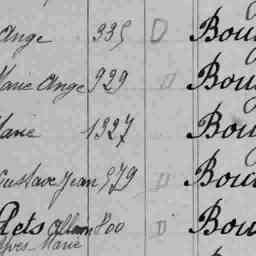 Ange 335 D Bou
Marie Ange 929 D Bou
Marie 1327 Bou
Gustave Jean 979 D Bou
lets 800 D Bou
Yves-Marie